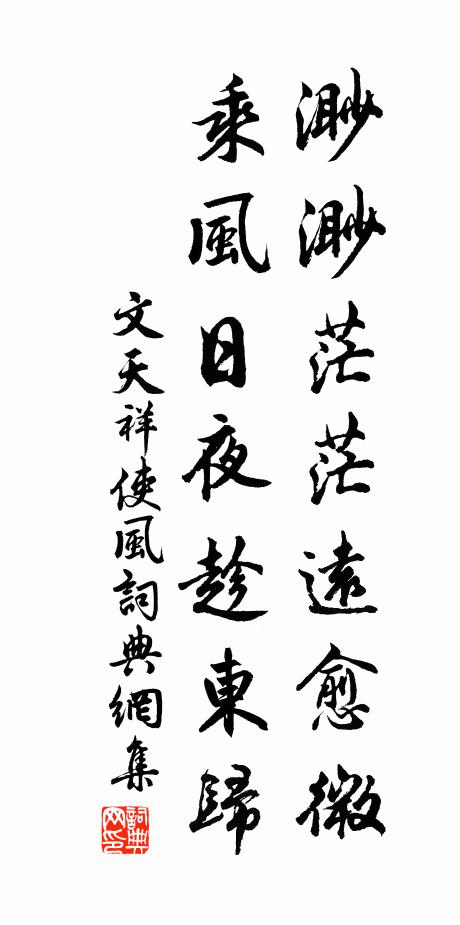 渺渺茫茫遠愈微
乘風日夜趁東歸
文天祥使風詞典網集
詞典網印